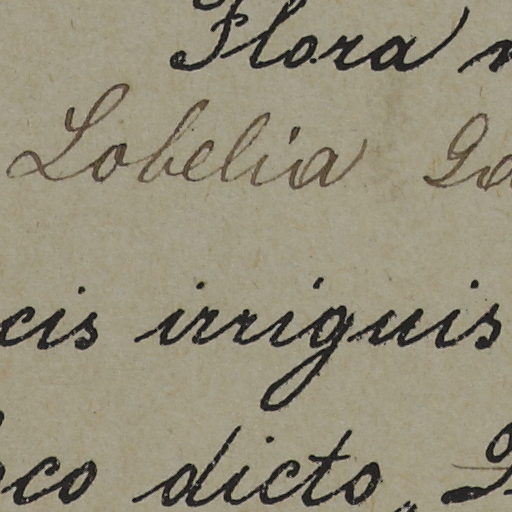 Flora
Lobelia
cis irriguis
oco dicto,